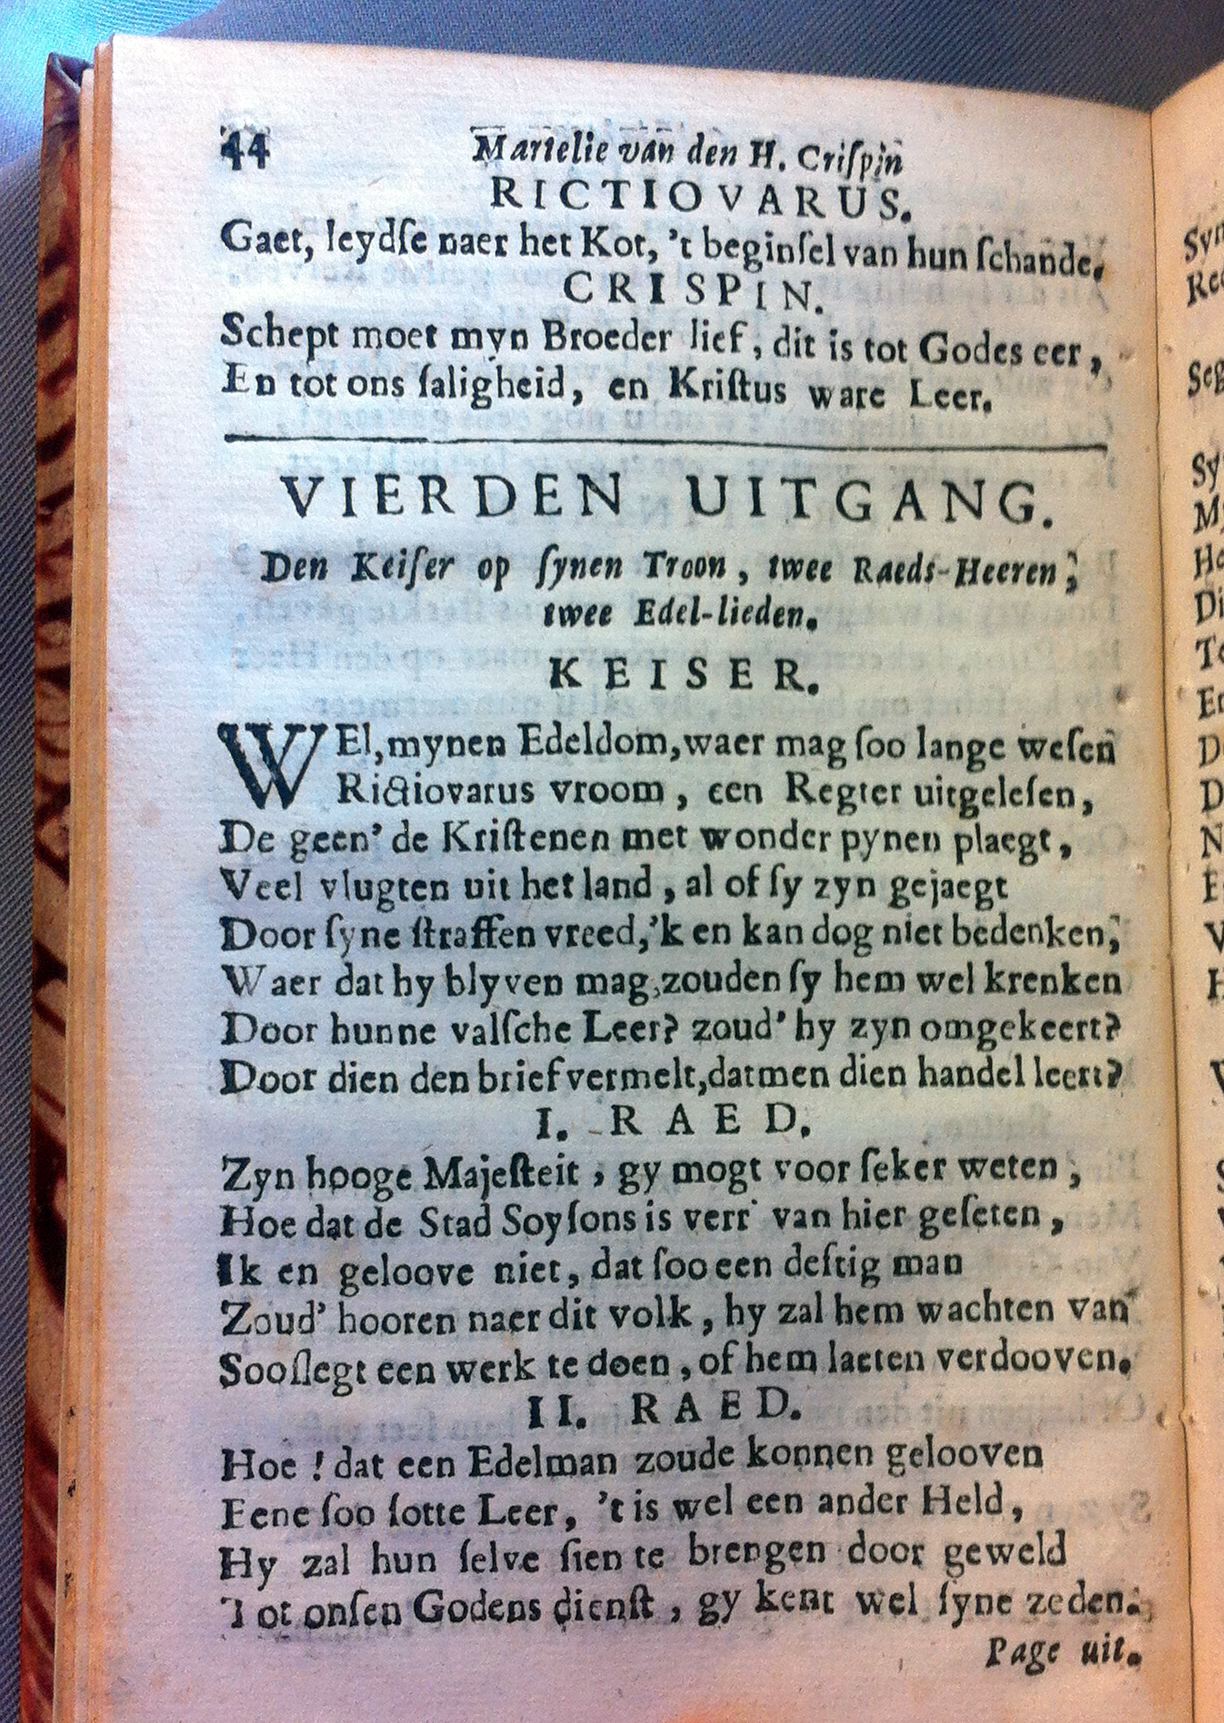 44 Martelie van den H. Criſpin
RICTIOVARUS.
Gaet, leydſe naer het Kot, 't beginſel van hun ſchande.
CRISPIN.
Schept moet myn Broeder lief, dit is tot Godes eer,
En tot ons ſaligheid, en Kriſtus ware Leer.
VIERDEN UITGANG.
Den Keiſer op ſynen Troon, twee Raeds-Heeren,
twee Edel-lieden.
KEISER.
WEl, mynen Edeldom, waer mag ſoo lange weſen
Rictiovarus vroom, een Regter uitgeleſen,
De geen' de Kriſtenen met wonder pynen plaegt,
Veel vlugten uit het land, al of ſy zyn gejaegt
Door ſyne ſtraffen vreed, 'k en kan dog niet bedenken,
Waer dat hy blyven mag, zouden ſy hem wel krenken
Door hunne valſche Leer? zoud' hy zyn omgekeert?
Door dien den brief vermelt, datmen dien handel leert?
I. RAED.
Zyn hooge Majeſteit, gy mogt voor ſeker weten,
Hoe dat de Stad Soyſons is verr' van hier geſeten,
Ik en geloove niet, dat ſoo een deſtig man
Zoud' hooren naer dit volk, hy zal hem wachten van
Soo ſlegt een werk te doen, of hem laeten verdooven.
II. RAED.
Hoe! dat een Edelman zoude konnen gelooven
Eene ſoo ſotte Leer, 't is wel een ander Held,
Hy zal hun ſelve ſien te brengen door geweld
Tot onſen Godens dienſt, gy kent wel ſyne zeden.
Page uit.